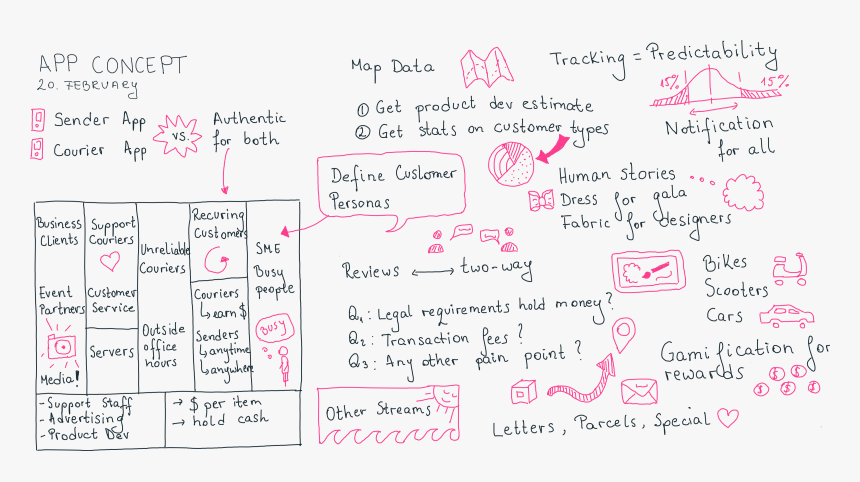 APP CONCEPT
20. FEBRUARY
Sender App
Courier App
vs.
Authentic
for both
Business
Clients
Event
Partners
Media!
Support
Couriers
Customer
Service
Servers
Unreliable
Couriers
Outside
office
hours
Recuring
Customers
Couriers
↳ earn $
Senders
↳ anytime
↳ anywhere
SME
Busy
people
BUSY
- Support Staff
- Advertising
- Product Dev
→ $ per item
→ hold cash
Map Data
① Get product dev estimate
② Get stats on customer types
Define Customer
Personas
Reviews ⟷ two-way
Q1: Legal requirements hold money?
Q2: Transaction fees?
Q3: Any other pain point?
Other Streams
Tracking = Predictability
15% 15%
Notification
for all
Human Stories
Dress for gala
Fabric for designers
Bikes
Scooters
Cars
Gamification for
rewards
$ $ $ $ $
Letters, Parcels, Special